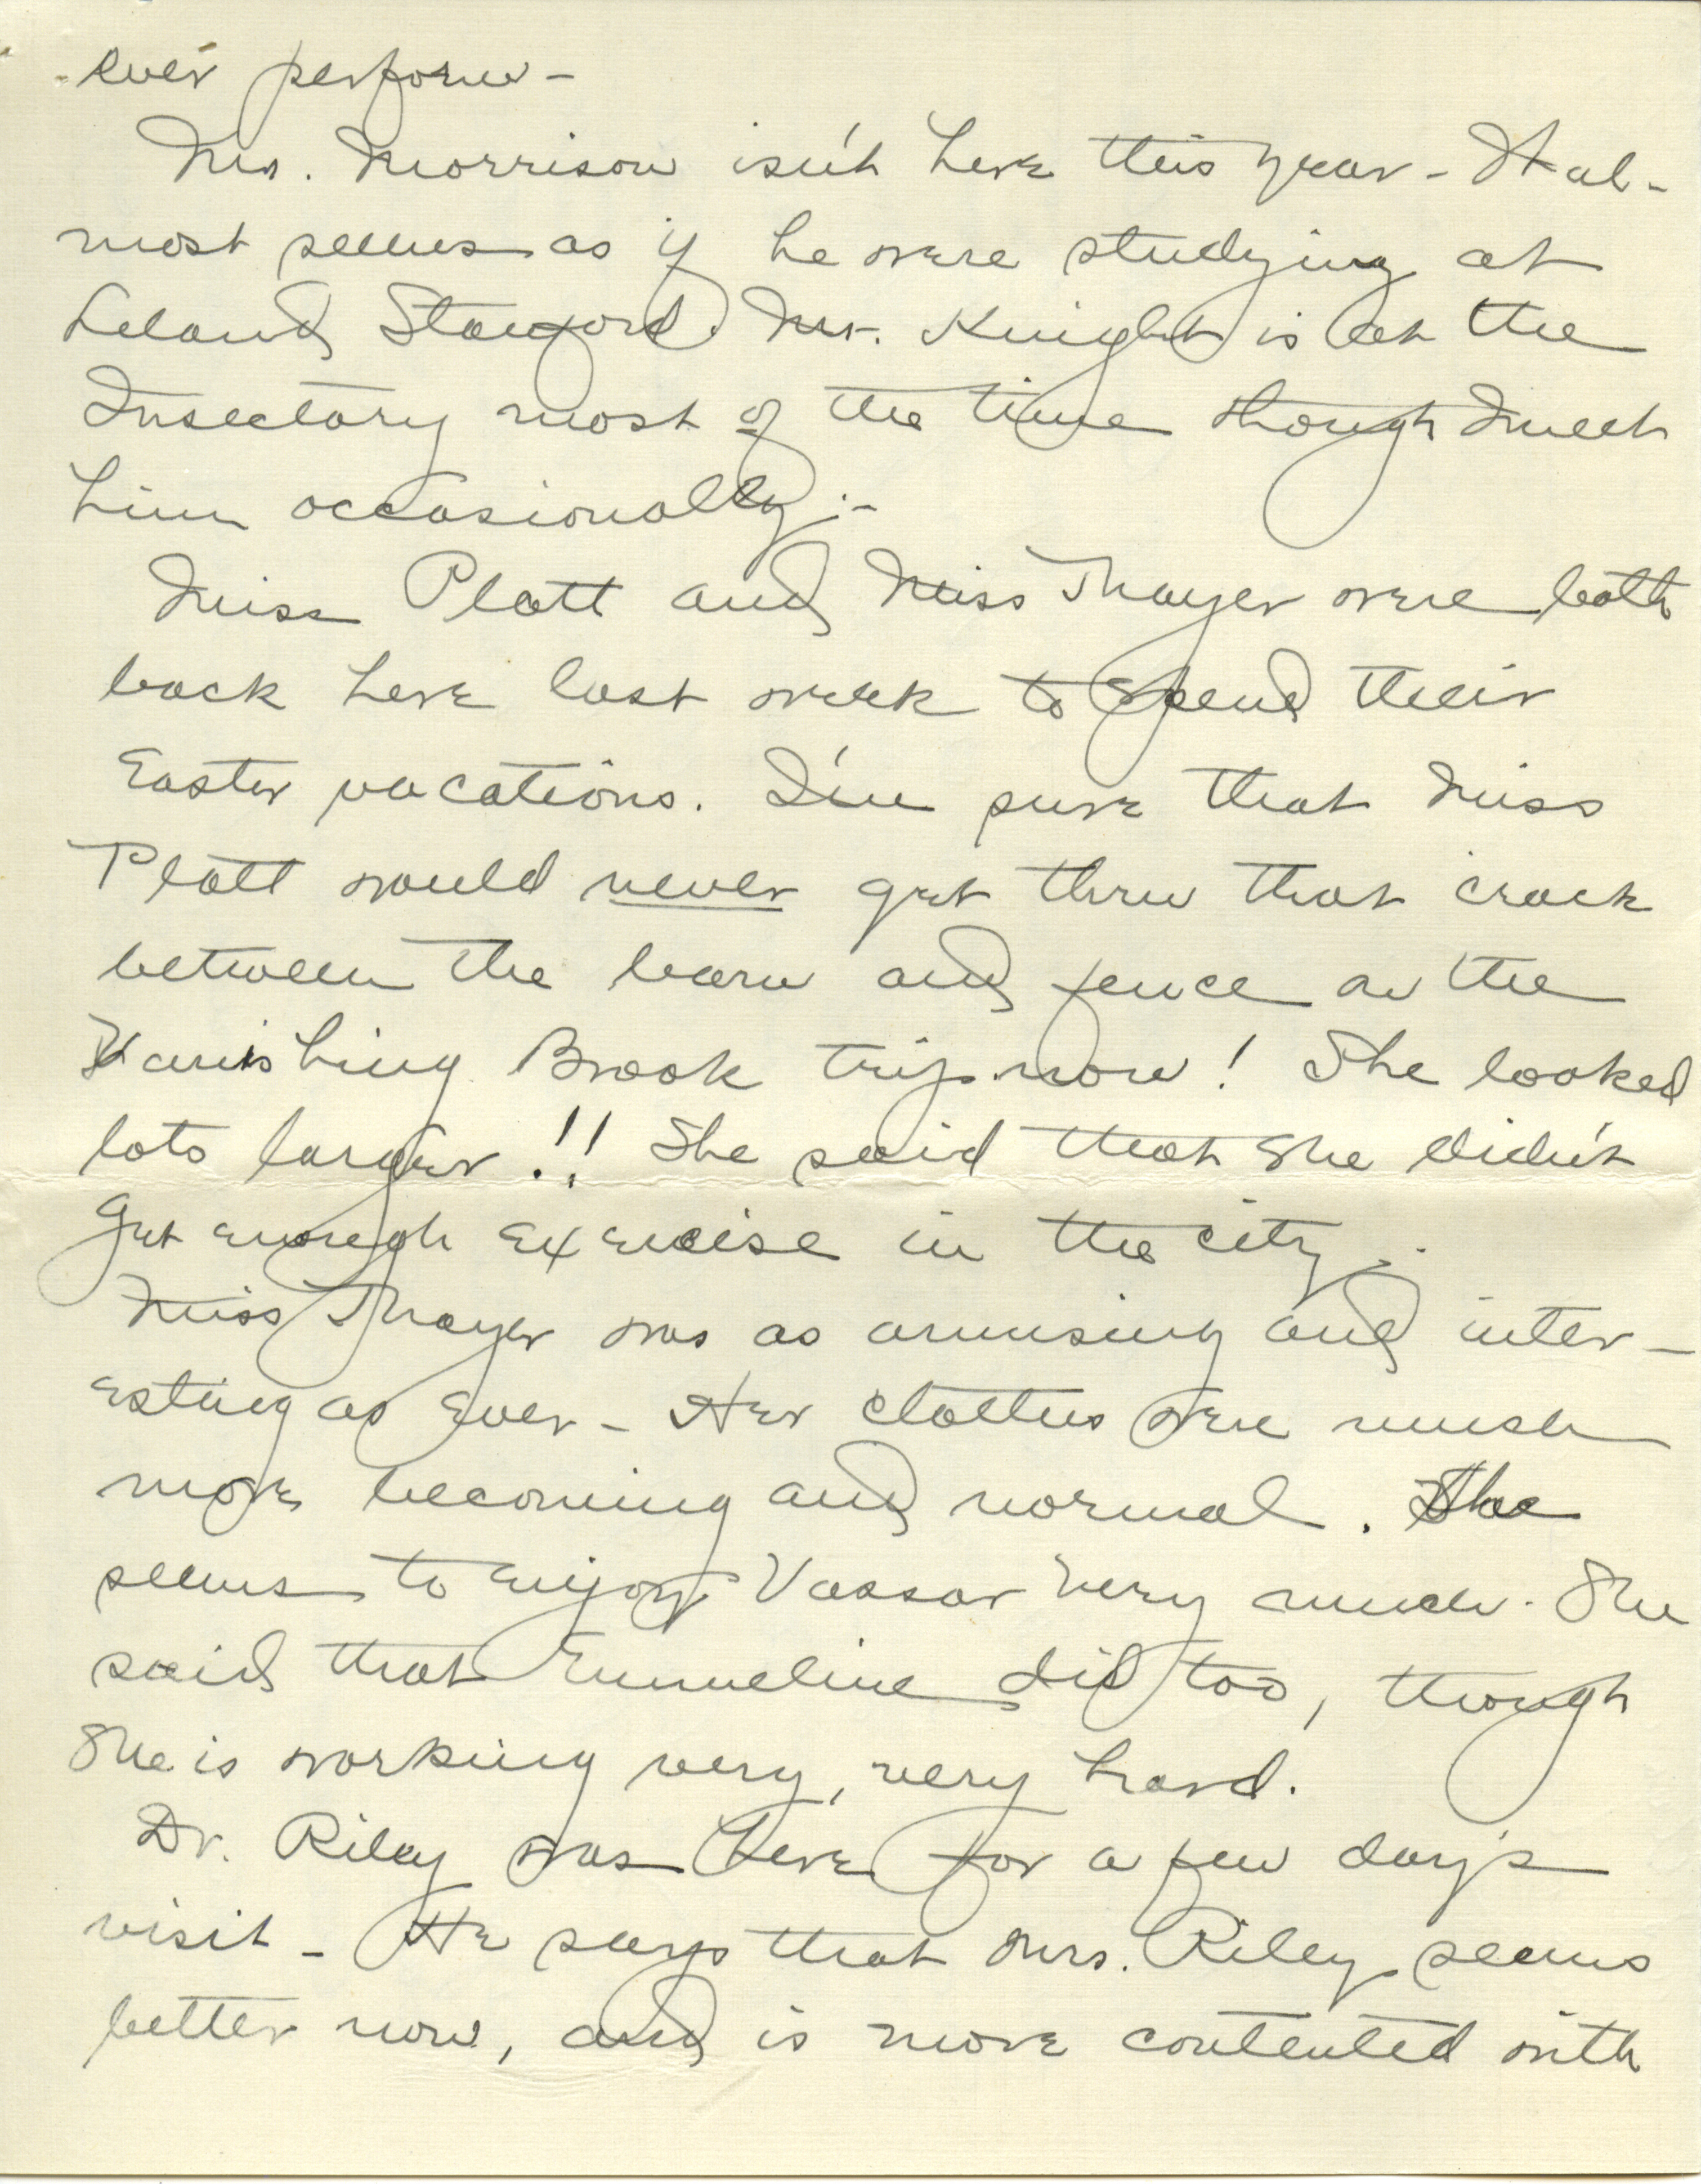 ever perform -
Mr. Morrison isn't here this year - It al-
most seems as if he were studying at
Leland Stanford. Mr. Knight is at the
Insectary most of the time though I meet
him occasionally. -
Miss Platt and Miss Thayer were both
back here last week to spend their
Easter vacations. I'm sure that Miss
Platt would never get thru that crack
between the barn and fence on the
Vanishing Brook trip now! She looked
lots larger!! She said that she didn't
get enough exercise in the city.
Miss Thayer was as amusing and inter-
esting as ever - Her clothes were much
more becoming and normal. She
seems to enjoy Vassar very much. She
said that Emmeline did too, though
she is working very, very hard.
Dr. Riley was here for a few day's
visit - He says that Mrs. Riley seems
better now, and is more contented with